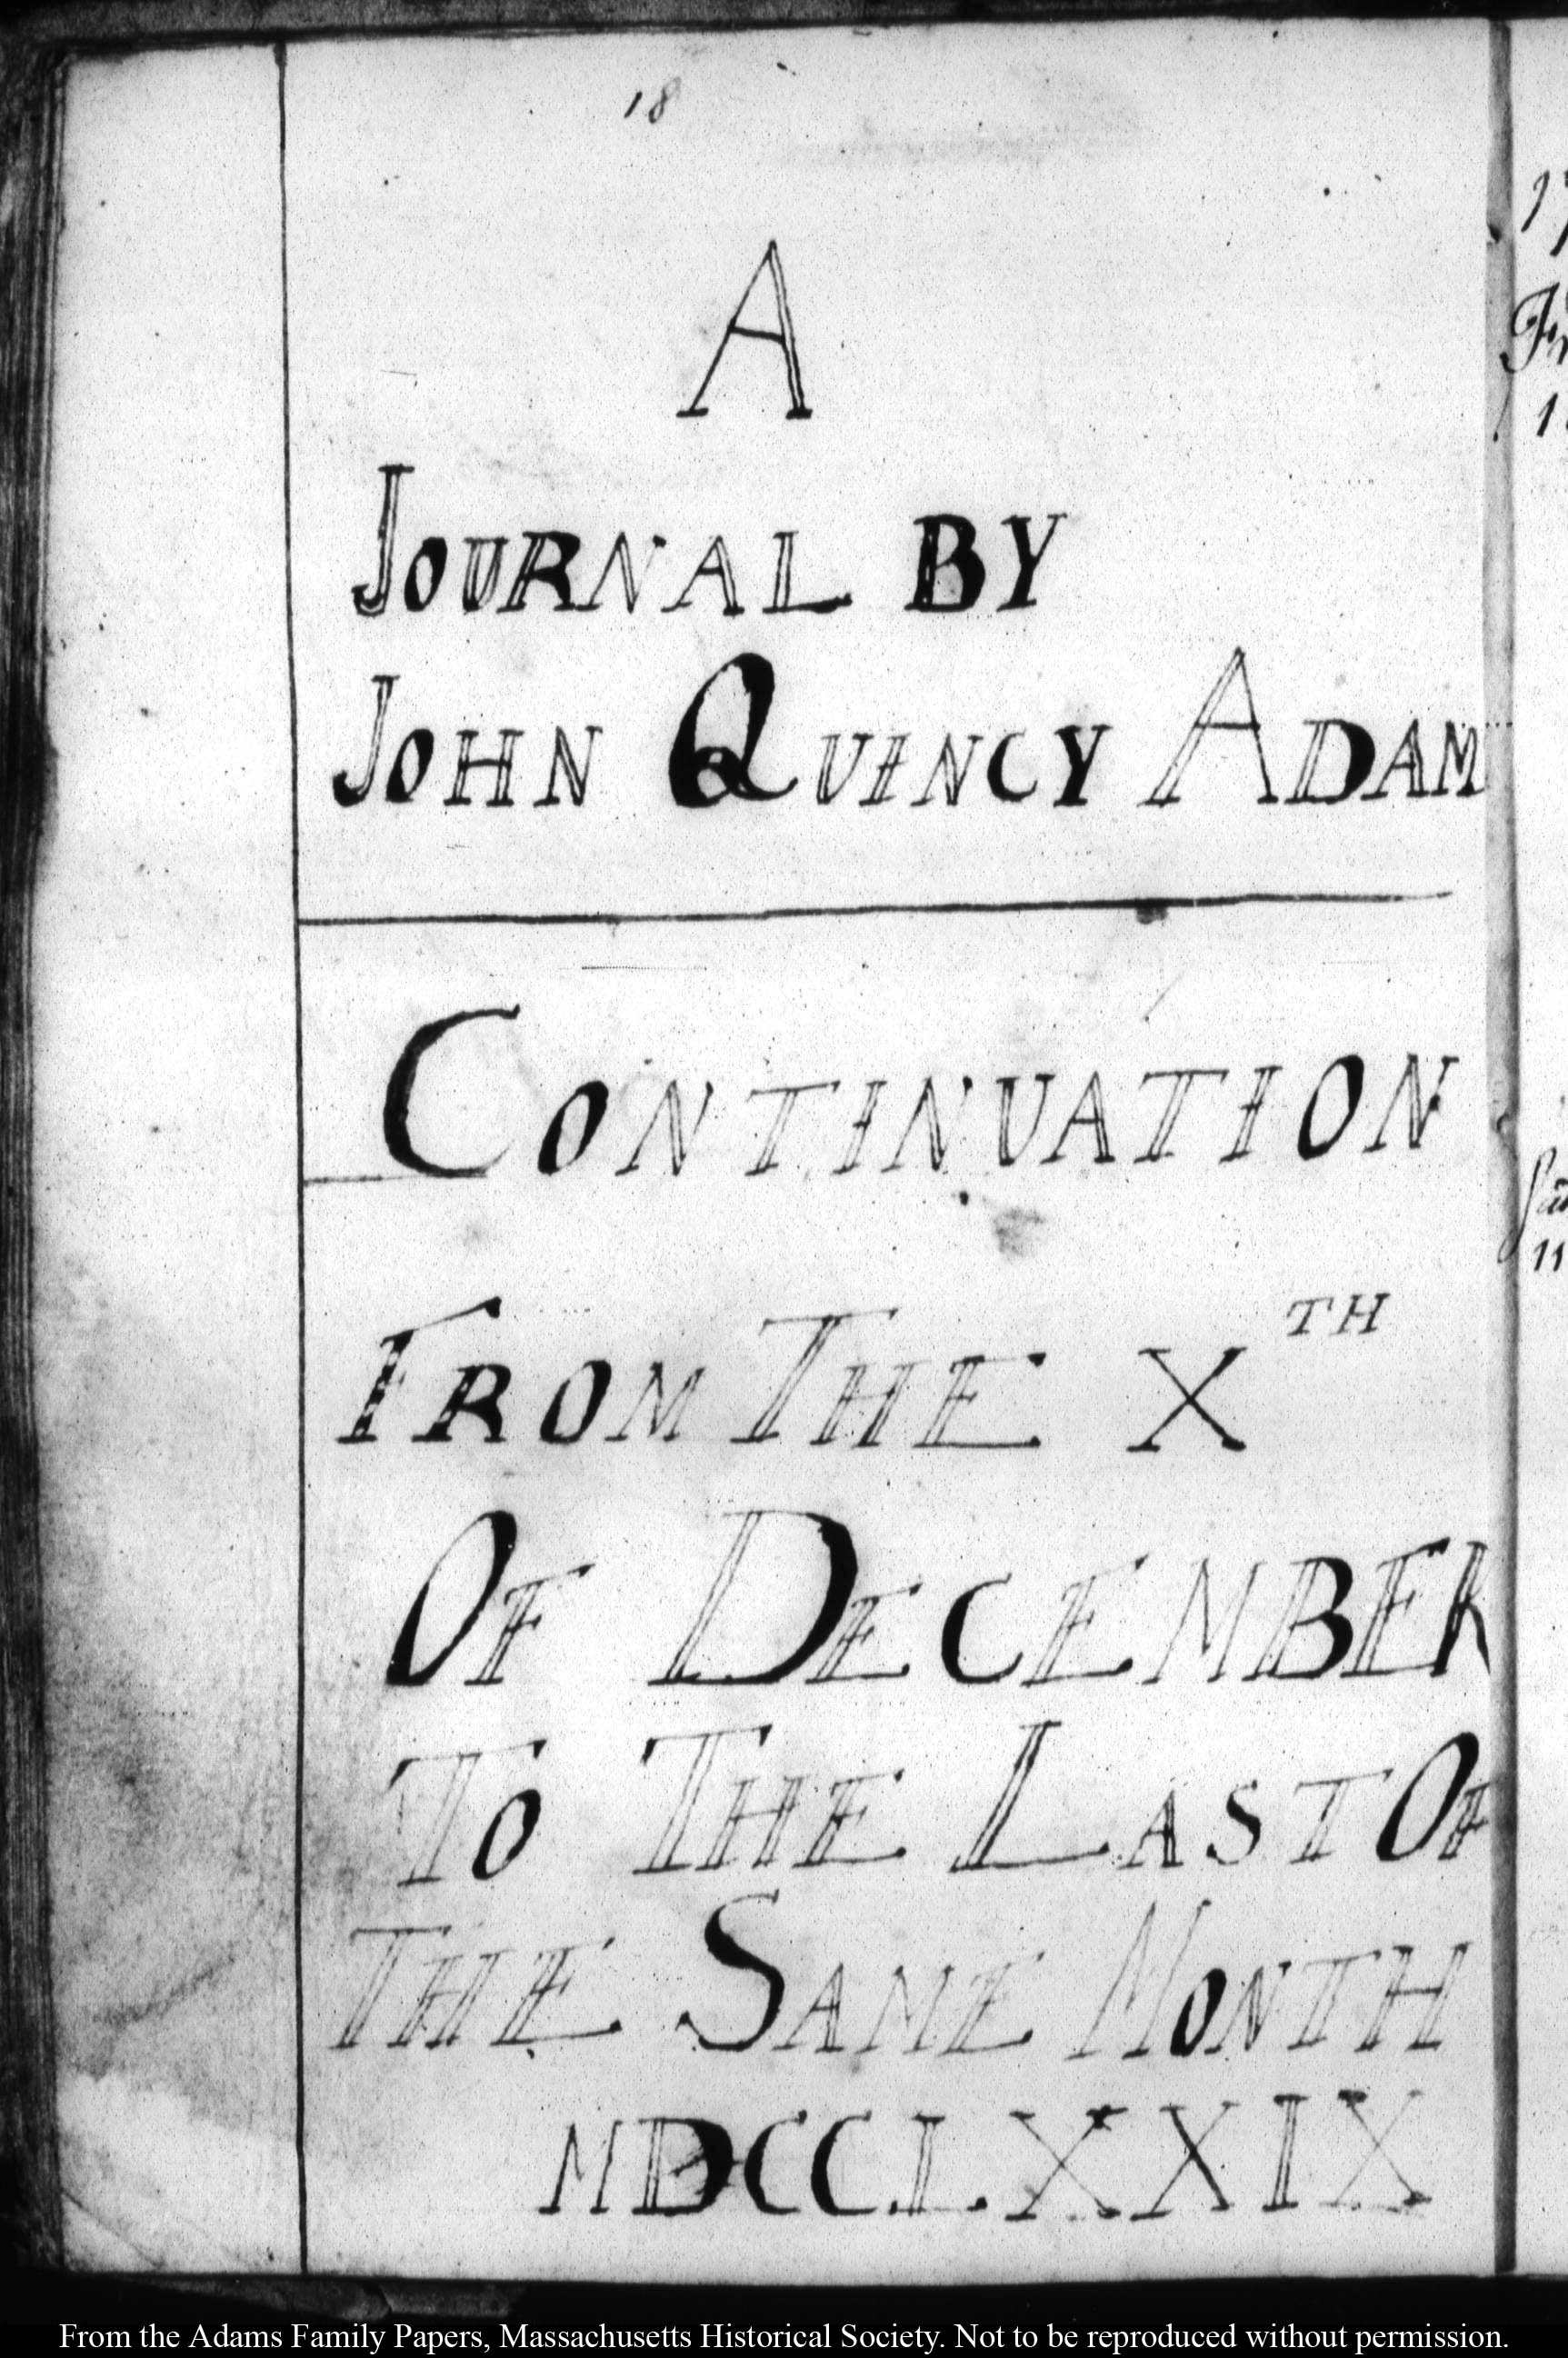 18
A
JOURNAL BY
JOHN QUINCY ADAM
CONTINUATION
FROM THE X TH
OF DECEMBER
TO THE LAST OF
THE SAME MONTH
MDCCLXXIX
From the Adams Family Papers, Massachusetts Historical Society. Not to be reproduced without permission.